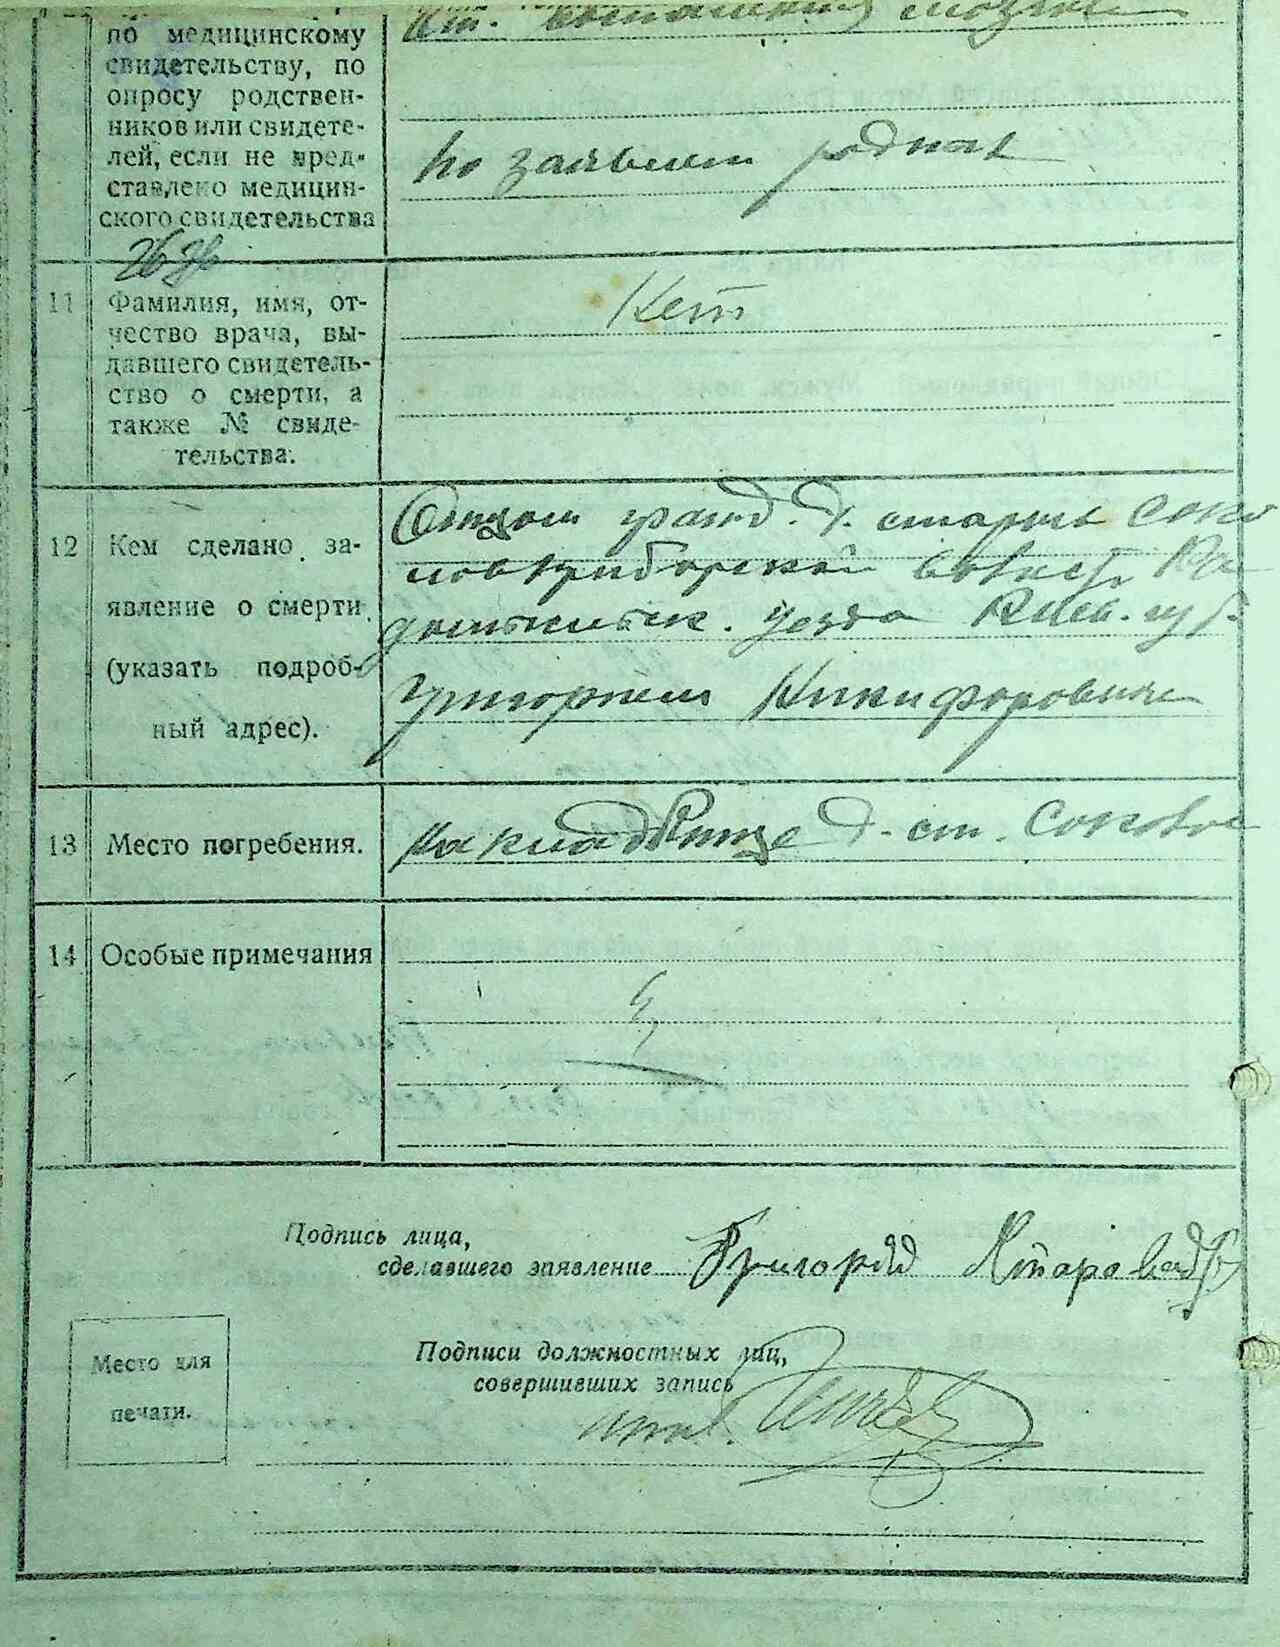 по медицинскому
свидетельству, по
опросу родствен-
ников или свидете-
лей, если не пред-
ставлено медицин-
ского свидетельства
От. воспаления мозгов
по заявлен родных
11
Фамилия, имя, от-
чество врача, вы-
давшего свидетель-
ство о смерти, а
также № свиде-
тельства.
Нет
12
Кем сделано за-
явление о смерти
(указать подроб-
ный адрес).
Отцом гражд. д. старые Соко
лов волости Ра
уезда Киев. губ.
Григорием Никифоровичем
13
Место погребения.
На кладбище д. ст. Соколов
14
Особые примечания
Подпись лица,
сделавшего заявление Григорий
Место для
печати.
Подписи должностных лиц,
совершивших запись